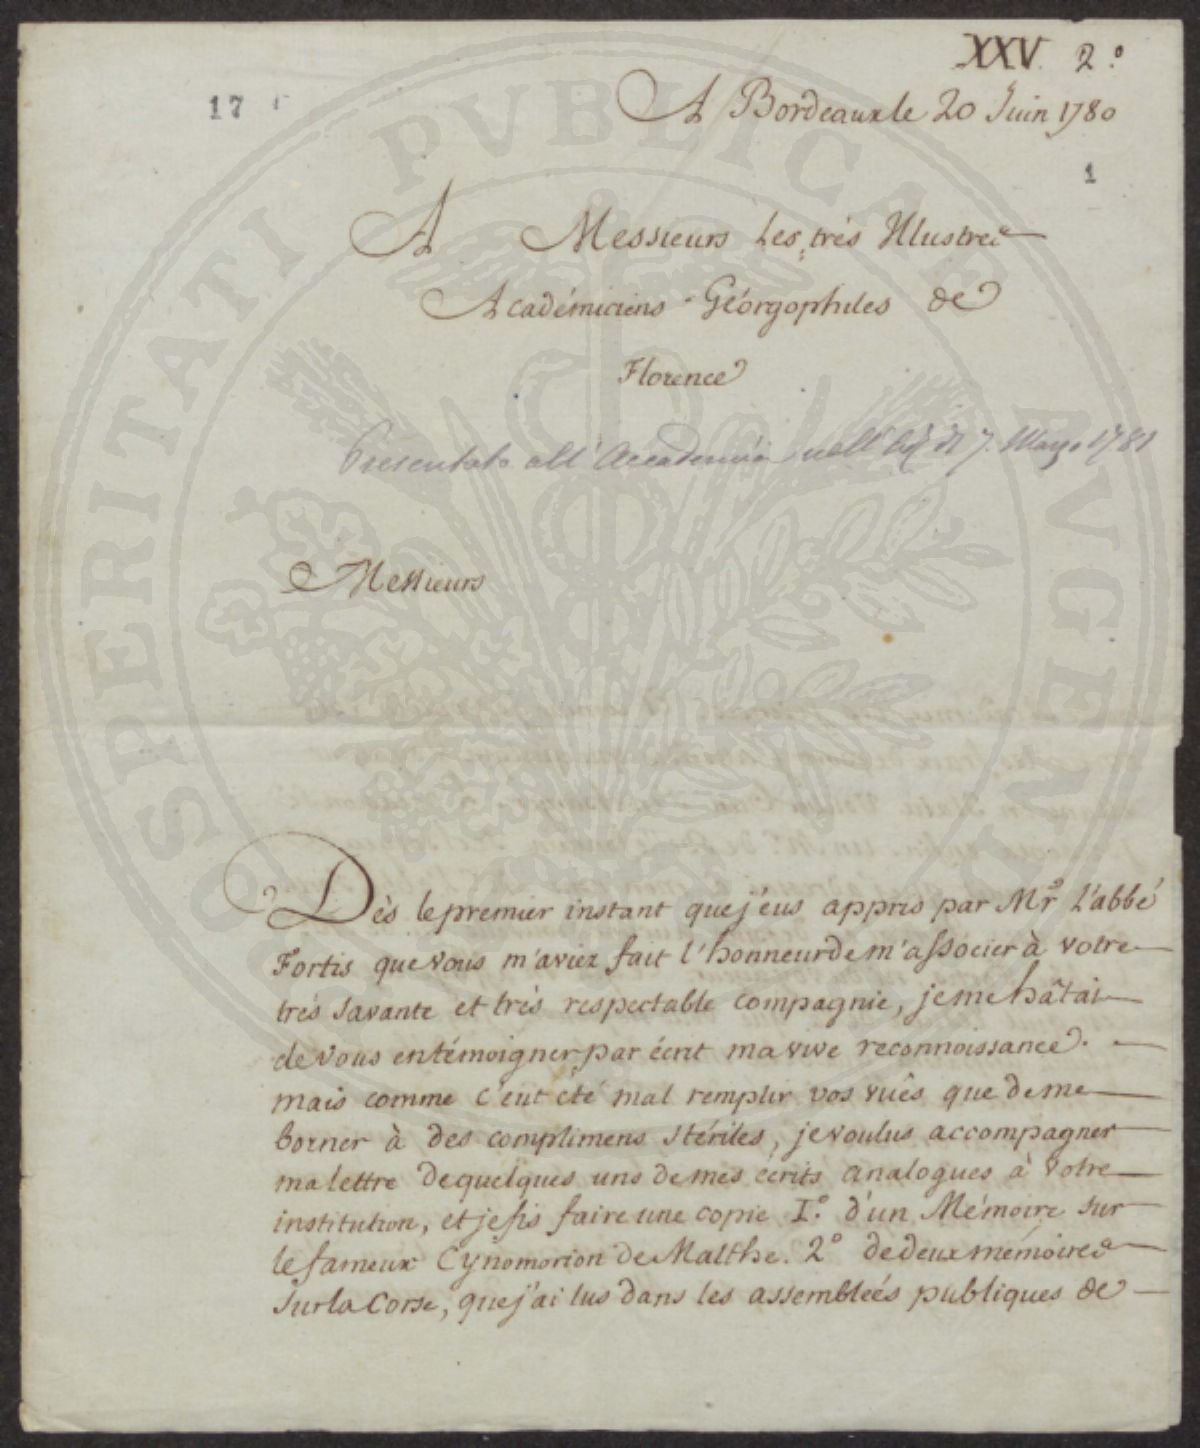 XXV. 2.°
17
A Bordeaux le 20 Juin 1780
1
A Messieurs Les très Illustres
Académiciens Géorgophiles de
Florence
Presentato all' Accademia nell' 7. Marzo 1781
Messieurs
Dès le premier instant que j'eus appris par Mr. L'abbé
Fortis que vous m'aviez fait l'honneur de m'associer à votre
très savante et très respectable compagnie, je me hâtai
de vous en témoigner par écrit ma vive reconnoissance.
mais comme c'eut été mal remplir vos vuës que de me
borner à des complimens stériles, je voulus accompagner
ma lettre de quelques uns de mes écrits analogues à votre
institution, et je fis faire une copie I.° d'un Mémoire sur
le fameux Cynomorion de Malthe. 2° de deux mémoires
sur la Corse, que j'ai lus dans les assembleés publiques de
PROSPERITATI PVBLICAE AVGENDAE